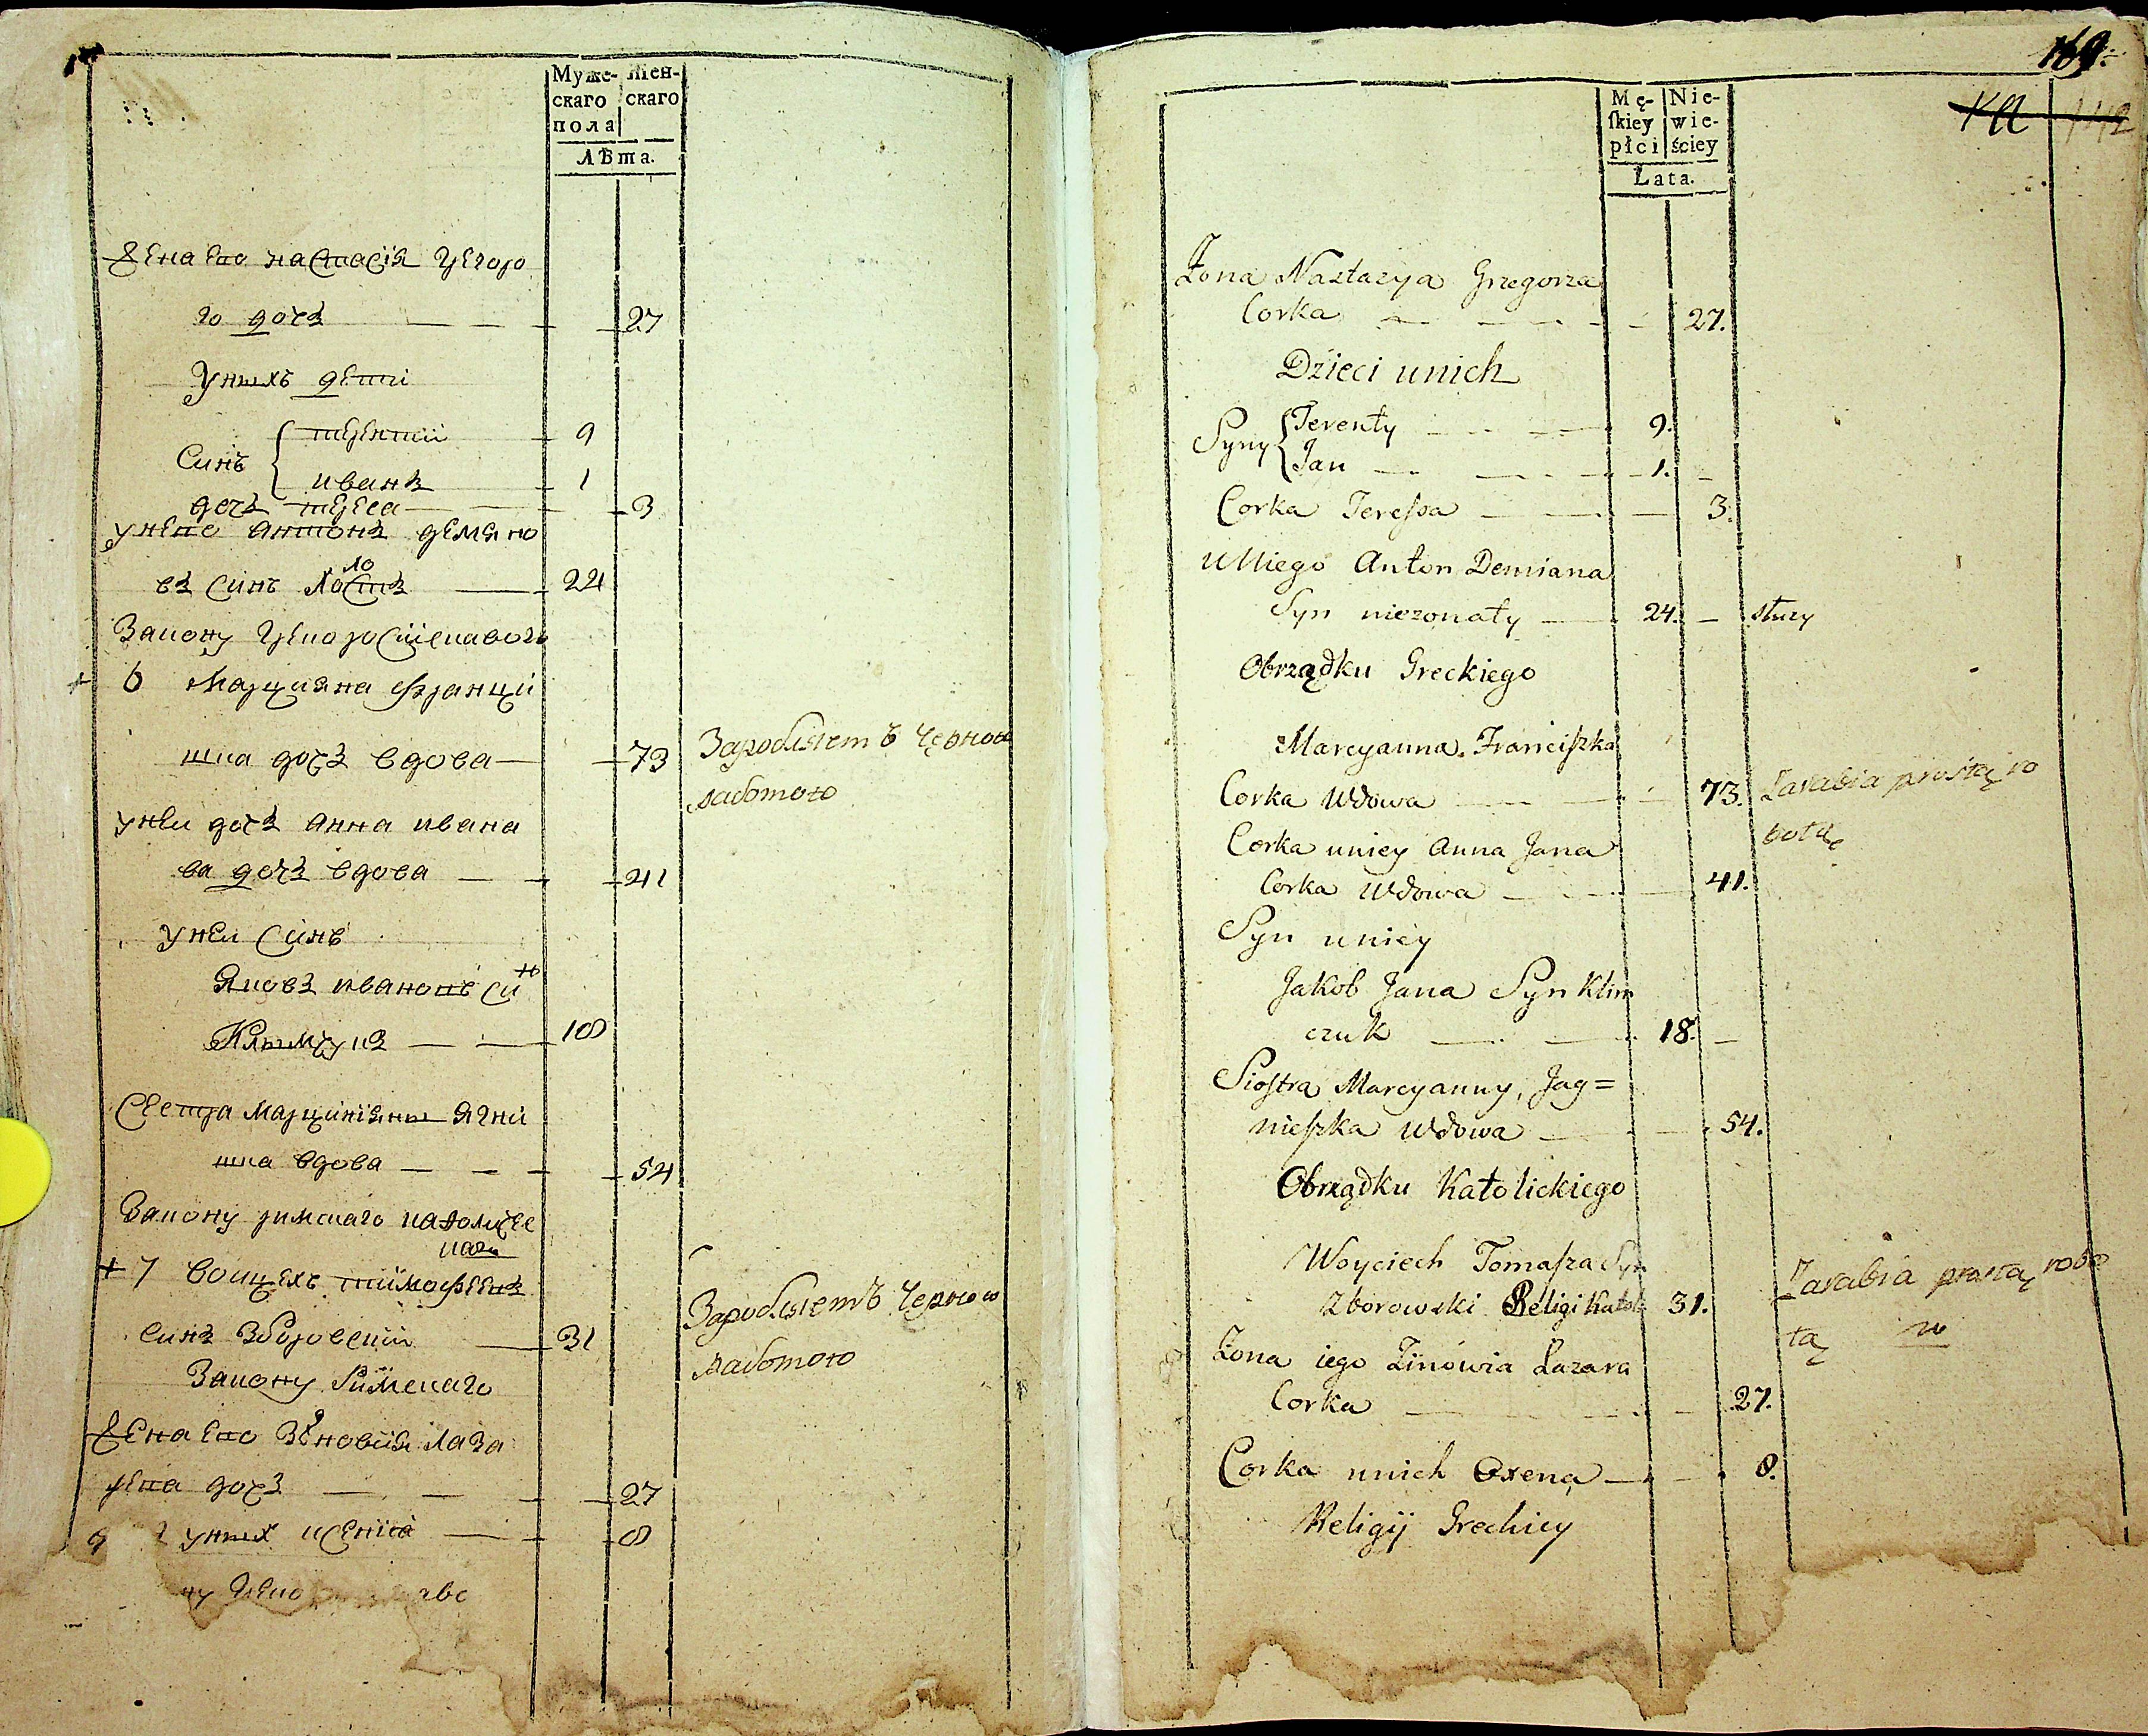 Муже- Жен-
скаго скаго
пола
Лѣта.
Жена его настасія григоро
го дочъ 27
Унихъ дети
Синъ терентій 9
иванъ 1
дочъ тереса 3
унего антонъ демяно
въ синъ холостъ 24
Закону грекоросіискаго
+ 6 Марцияна францы
шка дочъ вдова 73 Заробляетъ черною
работою
унеи дочъ анна ивана
ва дочъ вдова 41
унеи синъ
Яковъ ивановъ синъ
Климчукъ 18
Сестра марциняны ягни
шка вдова 54
Закону римскаго католиче
скаго
+ 7 воицехъ тимофеевъ
синъ зборовский 31 Заробляетъ черною
работою
Закону Римскаго
Жена его зеновія лаза
рева дочъ 27
унихъ ксенія 8
ну греко
169.
142
Mę- Nie-
ſkiey wie-
płci ściey
Lata.
Zona Nastazya Grzegorza
Corka 27.
Dzieci unich
Syny Terenty 9.
Jan 1.
Corka Tereſsa 3.
U Niego Anton Demiana
Syn niezonaty 24. słuzy
Obrządku Greckiego
Marcyanna Franciſzka
Corka Wdowa 73. Zarabia prostą ro
botą
Corka uniey Anna Jana
Corka Wdowa 41.
Syn uniey
Jakob Jana Syn Klim
czuk 18.
Sioſtra Marcyanny, Jag=
nieſzka Wdowa 54.
Obrządku Katolickiego
Woyciech Tomaſza Syn
Zborowski Religi Katol 31. Zarabia prostą robo
tą
Zona iego Zinowia Lazara
Corka 27.
Corka unich Oxena 8.
Religij Grechiey